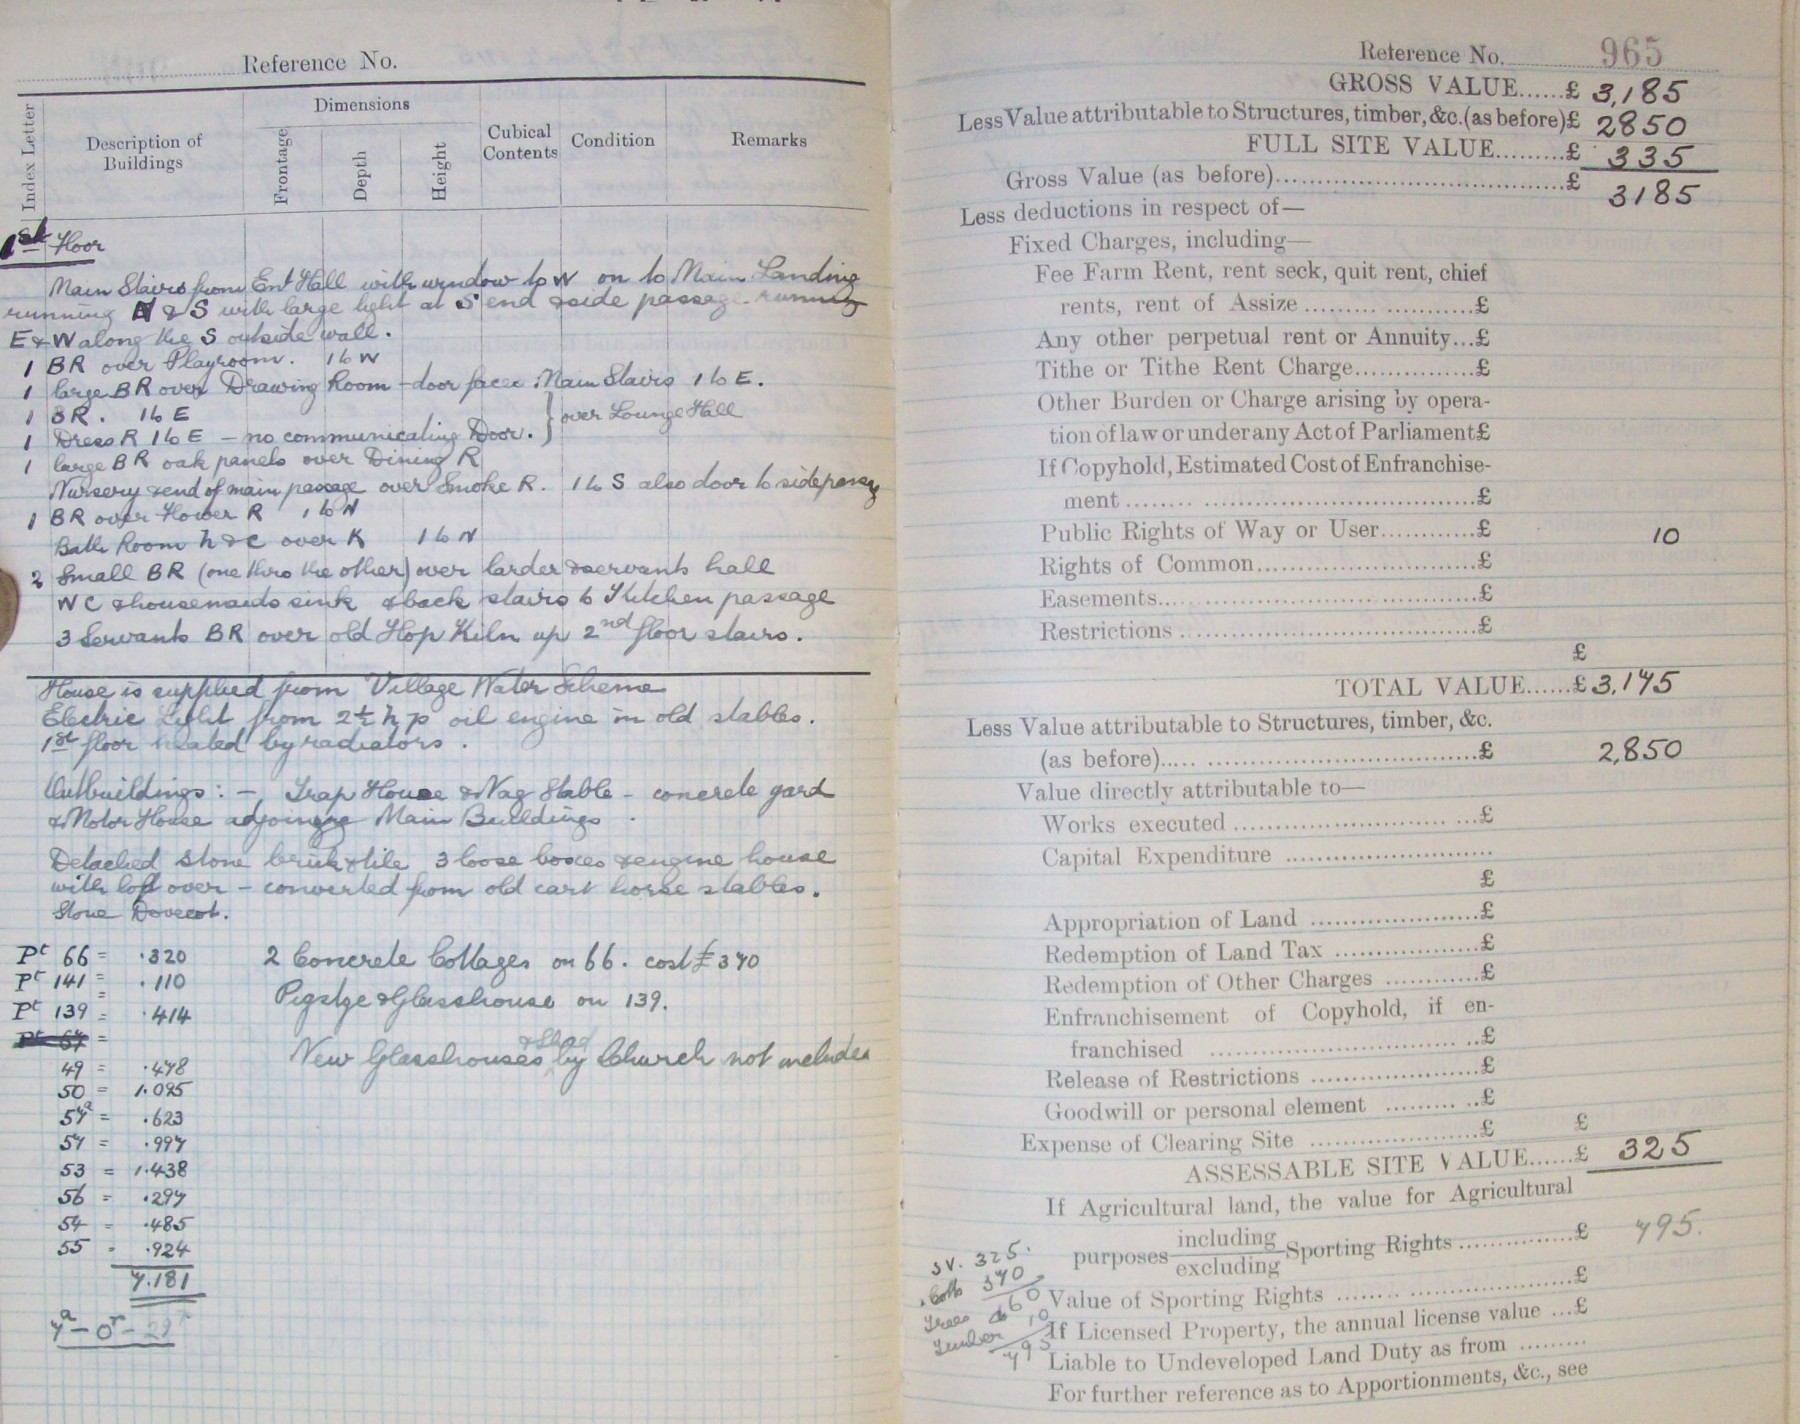 Reference No.
Index Letter
Description of Buildings
Dimensions
Frontage
Depth
Height
Cubical Contents
Condition
Remarks
1st Floor
Main Stairs from Ent Hall with window to W on to Main Landing
running N & S with large light at S end & side passage running
E & W along the S outside wall.
1 BR over Playroom. 1 to W
1 large BR over Drawing Room - door faces Main Stairs 1 to E.
1 BR. 1 to E
1 Dress R 1 to E - no communicating Door. } over Lounge Hall
1 large BR oak panels over Dining R
Nursery & end of main passage over Smoke R. 1 to S also door to side passag
1 BR over Flower R 1 to N
Bath Room h & c over K 1 to N
2 Small BR (one thro the other) over larder & servants hall
WC & housemaids sink & back stairs to Kitchen passage
3 Servants BR over old Hop Kiln up 2nd floor stairs.
House is supplied from Village Water Scheme
Electric Light from 2½ h p oil engine in old stables.
1st floor heated by radiators.
Outbuildings: - Trap House & Nag Stable - concrete yard
& Motor House adjoining Main Buildings.
Detached Stone brick & tile 3 loose boxes & engine house
with loft over - converted from old cart horse stables.
Stone Dovecot.
Pt 66 = .320 2 Concrete Cottages on 66. cost £370
Pt 141 = .110
Pt 139 = .414 Pigstye & Glasshouse on 139.
Pt 67 =
& Shed
49 = .478 New Glasshouses by Church not includes
50 = 1.095
57a = .623
57 = .997
53 = 1.438
56 = .297
54 = .485
55 = .924
7.181
7a - 0r - 29p
Reference No. 965
GROSS VALUE......£ 3,185
Less Value attributable to Structures, timber, &c. (as before)£ 2850
FULL SITE VALUE.........£ 335
Gross Value (as before)..........£ 3185
Less deductions in respect of—
Fixed Charges, including—
Fee Farm Rent, rent seck, quit rent, chief
rents, rent of Assize ..........£
Any other perpetual rent or Annuity...£
Tithe or Tithe Rent Charge..........£
Other Burden or Charge arising by opera-
tion of law or under any Act of Parliament£
If Copyhold, Estimated Cost of Enfranchise-
ment ..........£
Public Rights of Way or User............£ 10
Rights of Common..........£
Easements..........£
Restrictions ..........£
£
TOTAL VALUE......£ 3,175
Less Value attributable to Structures, timber, &c.
(as before)..........£ 2,850
Value directly attributable to—
Works executed ..........£
Capital Expenditure ..........
£
Appropriation of Land ..........£
Redemption of Land Tax ..........£
Redemption of Other Charges ............£
Enfranchisement of Copyhold, if en-
franchised ..........£
Release of Restrictions ..........£
Goodwill or personal element ..........£
Expense of Clearing Site ..........£ £
ASSESSABLE SITE VALUE......£ 325
If Agricultural land, the value for Agricultural
purposes including
excluding Sporting Rights ..........£ 795.
Value of Sporting Rights ..........£
If Licensed Property, the annual license value ...£
Liable to Undeveloped Land Duty as from .........
For further reference as to Apportionments, &c., see
SV. 325.
Cotts 370
Trees 60
Timber 10
795